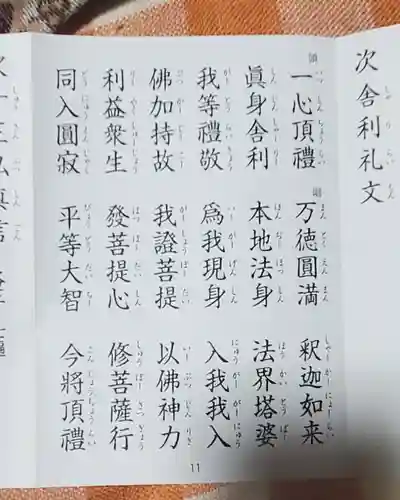 次舎利礼文
一心頂禮 万徳圓満 釈迦如来
眞身舎利 本地法身 法界塔婆
我等禮敬 爲我現身 入我我入
佛加持故 我證菩提 以佛神力
利益衆生 發菩提心 修菩薩行
同入圓寂 平等大智 今將頂禮
11